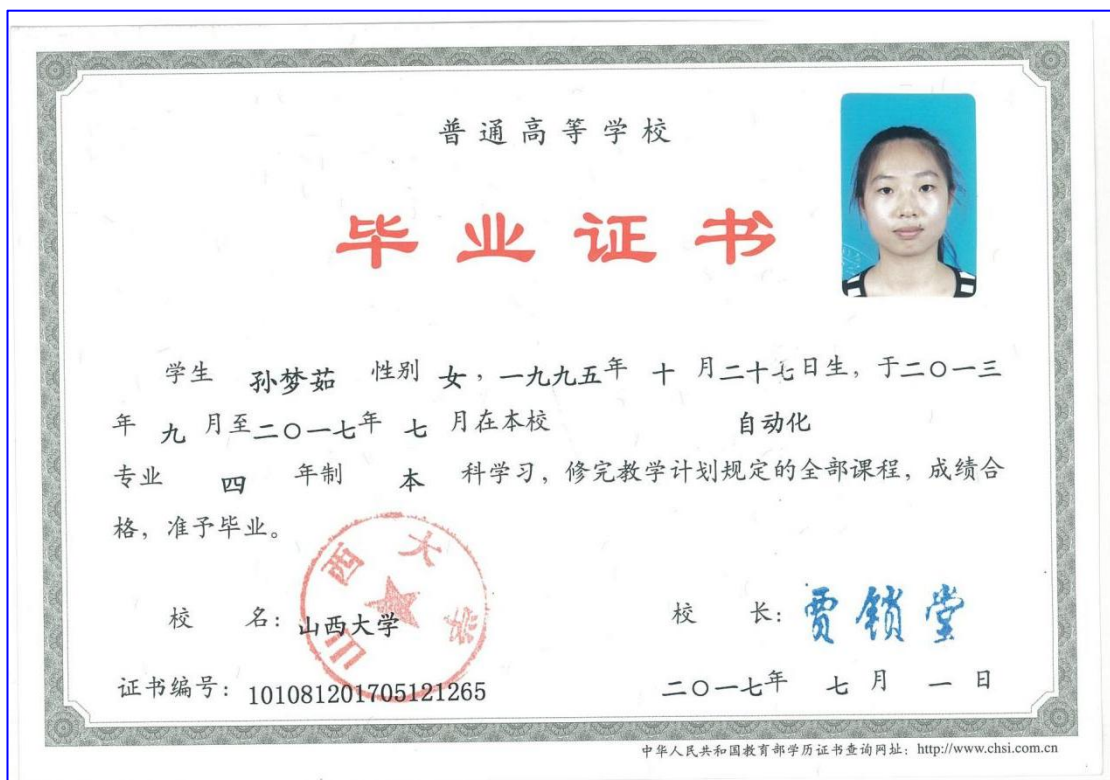 普通高等学校
毕业证书
学生 孙梦茹 性别 女，一九九五年 十 月二十七日生，于二〇一三
年 九 月至二〇一七年 七 月在本校 自动化
专业 四 年制 本 科学习，修完教学计划规定的全部课程，成绩合
格，准予毕业。
山西大学
校 名：山西大学
校 长：贾锁堂
证书编号：101081201705121265
二〇一七年 七 月 一 日
中华人民共和国教育部学历证书查询网址：http://www.chsi.com.cn